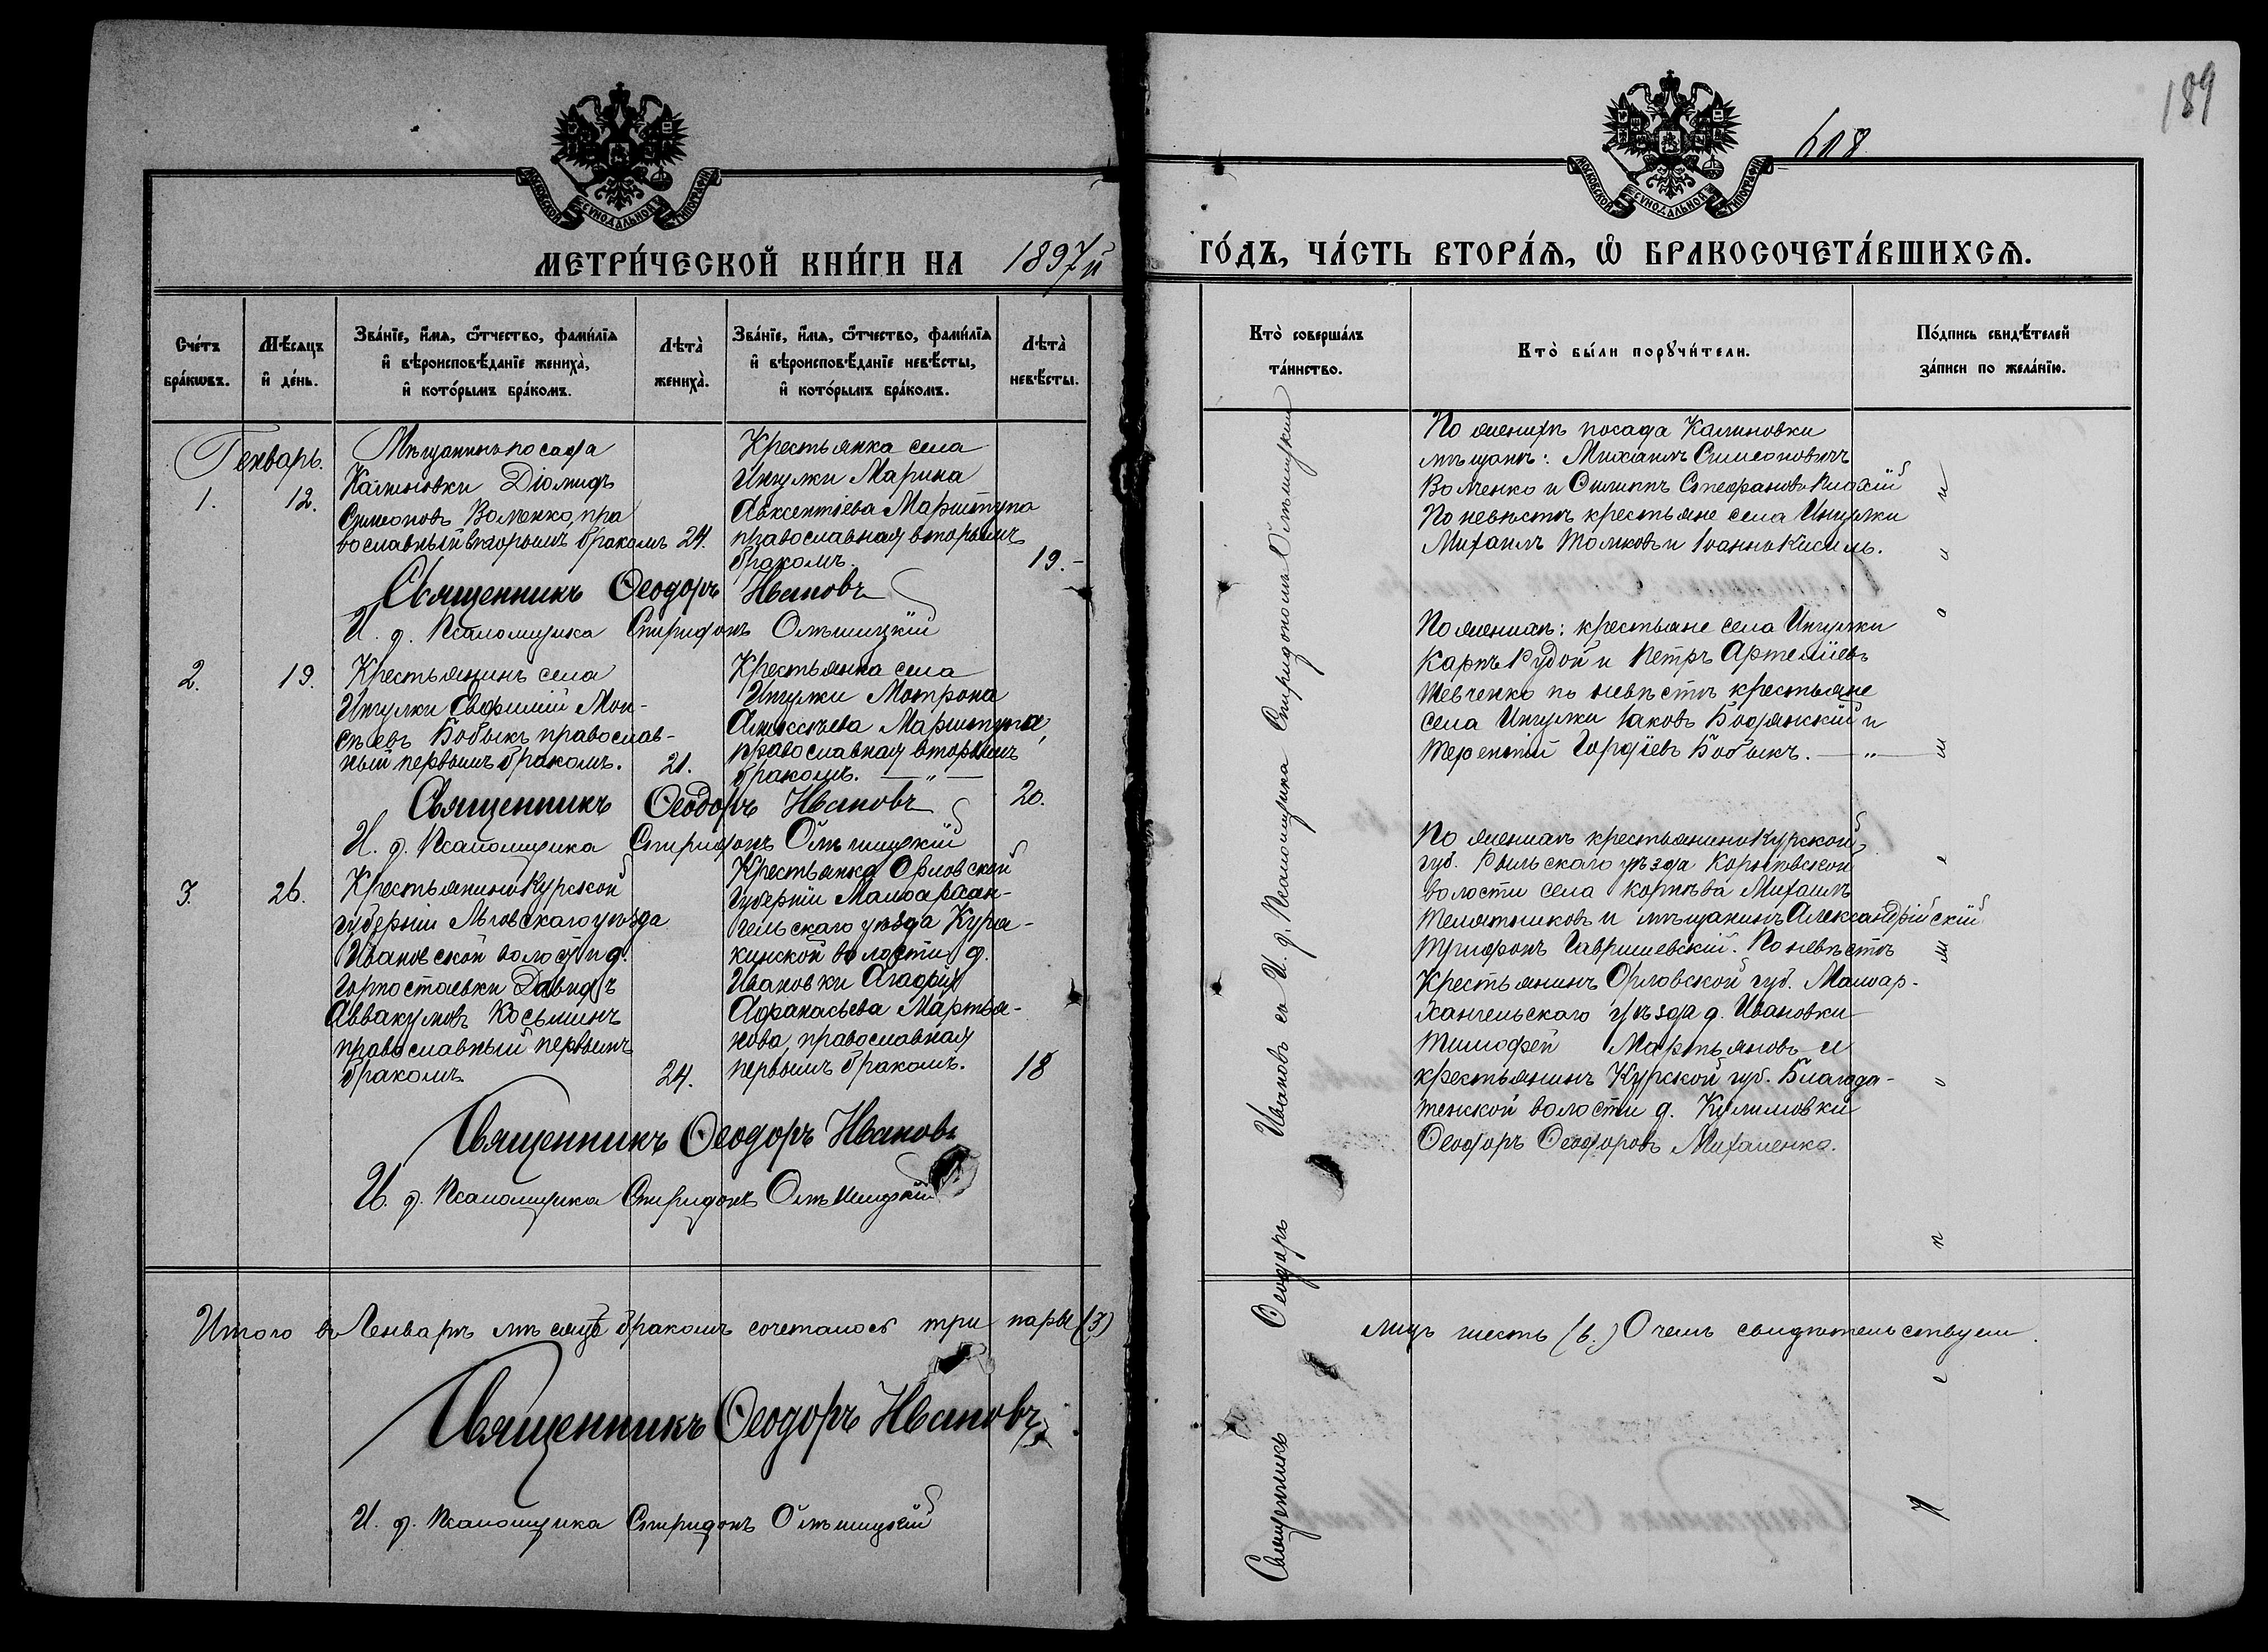 189
608
МОСКОВСКОЙ СѴНОДАЛЬНОЙ ТИПОГРАФІИ
МОСКОВСКОЙ СѴНОДАЛЬНОЙ ТИПОГРАФІИ
МЕТРИ́ЧЕСКОЙ КНИ́ГИ НА 1897й
ГО́ДЪ, ЧА́СТЬ ВТОРА́Ѧ, Ѿ БРАКОСОЧЕТА́ВШИХСѦ.
Сче́тъ
бра́кѡвъ.
Мѣ́сѧцъ
и҆ де́нь.
Зва́нїе, и҆́мѧ, ѻ҆́тчество, фами́лїѧ
и҆ вѣроисповѣ́данїе жениха̀,
и҆ кото́рымъ бра́комъ.
Лѣта̀
жениха̀.
Зва́нїе, и҆́мѧ, ѻ҆́тчество, фами́лїѧ
и҆ вѣроисповѣ́данїе невѣ́сты,
и҆ кото́рымъ бра́комъ.
Лѣта̀
невѣ́сты.
Кто̀ соверша́лъ
та́инство.
Кто̀ бы́ли порꙋчи́тели.
По́дпись свидѣ́телей
за́писи по жела́нїю.
Генварь.
1.
12.
Мѣщанинъ посада
Калиновки Діомидъ
Симеоновъ Воленко, пра
вославный вторымъ бракомъ
24.
Крестьянка села
Ингулки Марина
Авксентіева Мариштупа
православная вторымъ
бракомъ.
19.-
Священникъ Ѳеодоръ Ивановъ
И. д. Псаломщика Спиридонъ Ольшицкій
По женихѣ посада Калиновки
мѣщане: Михаилъ Симеоновичъ
Воленко и Филиппъ Стефановъ
По невѣстѣ крестьяне села Ингулки
Михаилъ Волковъ и Іоаннъ Кисиль.
2.
19.
Крестьянинъ села
Ингулки Евфимій Мои-
сѣевъ Бобыкъ православ-
ный первымъ бракомъ.
21.
Крестьянка села
Ингулки Мотрона
Алексѣева Мариштупа,
православная вторымъ
бракомъ. — „ —
20.
Священникъ Ѳеодоръ Ивановъ
И. д. Псаломщика Спиридонъ Ольшицкій
По женихѣ: крестьяне села Ингулки
Карпъ Рудой и Петръ Артеміевъ
Шевченко по невѣстѣ крестьяне
села Ингулки Іаковъ Бодянскій и
Терентій Гордіевъ Бобыкъ. — „ —
3.
26.
Крестьянинъ Курской
губерніи Льговскаго уѣзда
Ивановской волости д.
Горностаевки Давидъ
Аввакумовъ Косьминъ
православный первымъ
бракомъ
24.
Крестьянка Орловской
губерніи Малоархан-
гельскаго уѣзда Кура-
кинской волости д.
Ивановки Агафія
Афанасьева Мартья-
нова, православная
первымъ бракомъ.
18
Священникъ Ѳеодоръ Ивановъ
И. д. Псаломщика Спиридонъ Ольшицкій
По женихѣ крестьянинъ Курской
губ. Рыльскаго уѣзда Коренѣвской
волости села Коренѣва Михаилъ
Телятниковъ и мѣщанинъ Александрійскій
Трифонъ Гавришевскій. По невѣстѣ
Крестьянинъ Орловской губ. Малоар-
хангельскаго уѣзда д. Ивановки
Тимофей Мартьяновъ и
крестьянинъ Курской губ. Благода-
тенской волости д. Кулимовки
Ѳеодоръ Ѳеодоровъ Михаленко.
Священникъ Ѳеодоръ Ивановъ съ И. д. Псаломщика Спиридономъ Ольшицкимъ
Итого въ Генварѣ мѣсяцѣ бракомъ сочеталось три пары (3)
лицъ шесть (6.) О чемъ свидѣтельствуемъ.
Священникъ Ѳеодоръ Ивановъ
И. д. Псаломщика Спиридонъ Ольшицкій